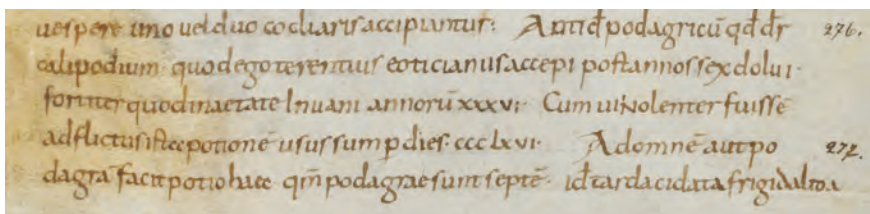 uespere uno uel duo cocliaris accipiantur: Antid̄ podagricū qđ dr̄ 276.
calipodium quod ego terentius eoticianus accepi post annos sex dolui·
fortiter quod in aetate Inueni annorū xxxvi· Cum uiNolenter fuissē
adflictus istec potionē usus sum ꝑ dies· ccclxvi· Ad omnē aut po
dagrā facit potio haec qm̄ podagrae sunt septē· id̄ tarda cidata frigida